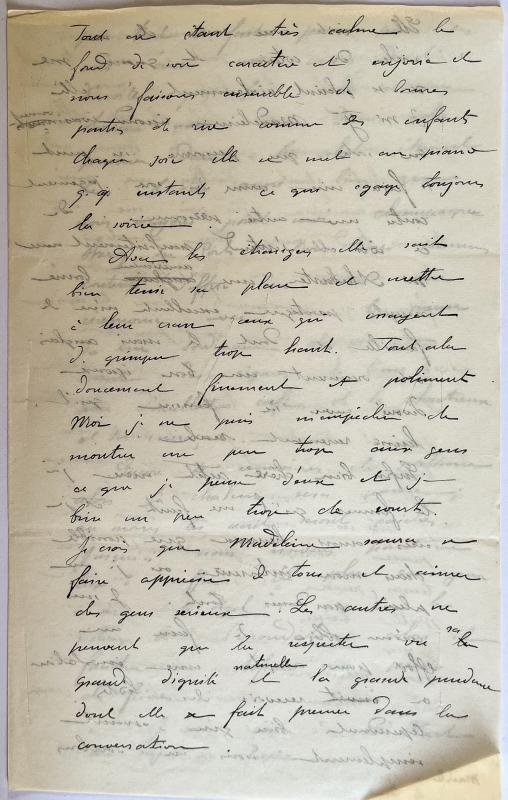 Tout en étant très calme le
fond de son caractère est enjoué et
nous faisons ensemble de bonnes
parties de rire comme des enfants
Chaque soir elle se met au piano
q.q. instants ce qui égaye toujours
la soirée.
Avec les étrangers elle sait
bien tenir sa place et mettre
à leur cran ceux qui essayent
de grimper trop haut. Tout cela
doucement finement et poliment
Moi je ne puis m'empêcher de
montrer un peu trop aux gens
ce que je pense d'eux et je
brise un peu trop de court.
Je crois que Madeleine saura se
faire apprécier de tous et aimer
des gens serieux. Les autres ne
peuvent que la respecter vu sa
grande dignité naturelle et la grande prudence
dont elle fait preuve dans la
conversation